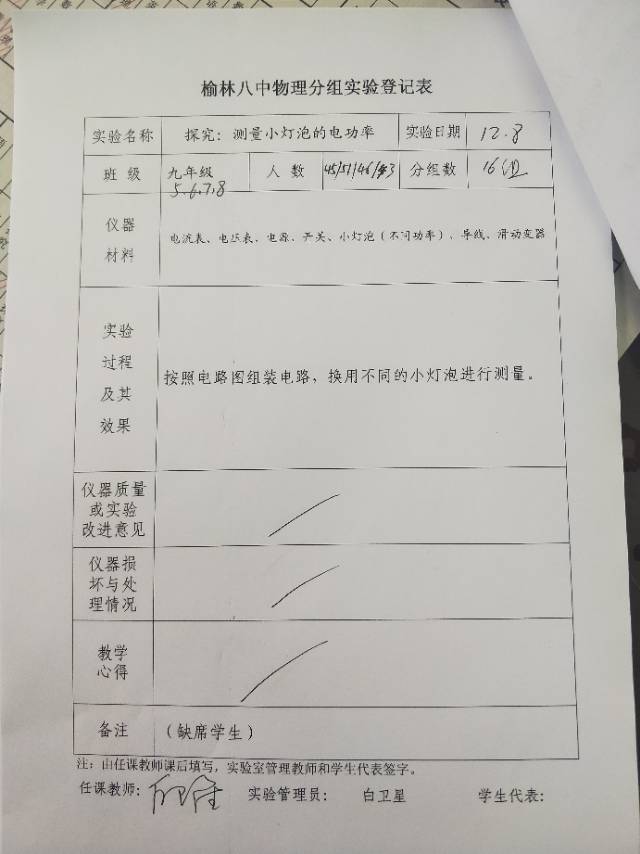 榆林八中物理分组实验登记表
实验名称 探究：测量小灯泡的电功率 实验日期 12.8
班 级 九年级 5.6.7.8 人 数 45/51/46/43 分组数 16
仪器材料 电流表、电压表、电源、开关、小灯泡（不同功率）、导线、滑动变器
实验过程及其效果 按照电路图组装电路，换用不同的小灯泡进行测量。
仪器质量或实验改进意见
仪器损坏与处理情况
教学心得
备注 （缺席学生）
注：由任课教师课后填写，实验室管理教师和学生代表签字。
任课教师： 实验管理员： 白卫星 学生代表：